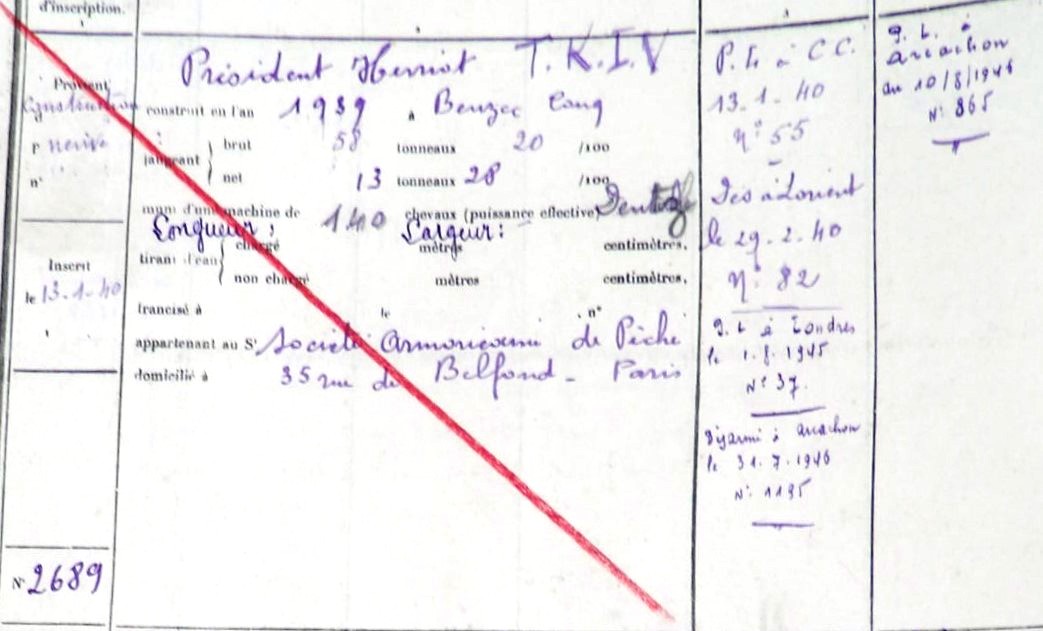 d'inscription.
Provient
Construction
neuve
n°
Inscrit
le 13-1-40
N° 2689
Président Herriot T.K.I.V
construit en l'an 1939 à Beuzec Conq
jaugeant
brut 58 tonneaux 20 /100
net 13 tonneaux 28 /100
muni d'une machine de 140 chevaux (puissance effective)
Longueur : Largeur :
tirant d'eau
chargé mètres centimètres.
non chargé mètres centimètres.
francisé à le n°
appartenant au Sr Société Armoricaine de Pêche
domicilié à 35 rue de Belfond - Paris
P. à C C.
13-1-40
n° 55
Des à Lorient
le 29-2-40
n° 82
à Londres
le 1.8.1945
N° 37.
Désarmé à Arcachon
le 31.7.1946
N° 1195
à
Arcachon
au 10/8/1946
N° 865